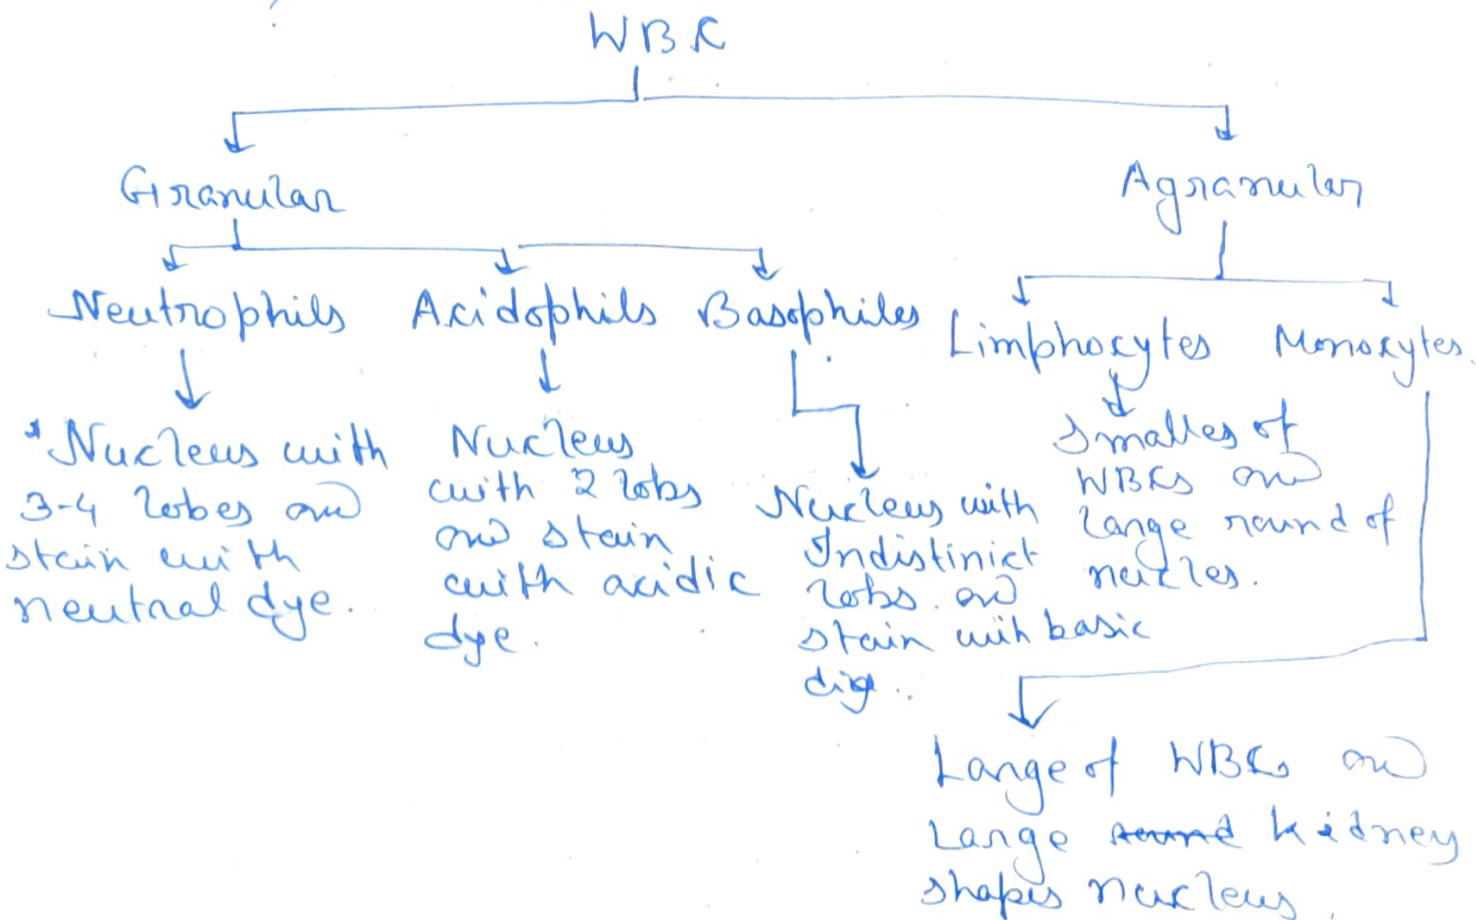 WBC
Granular
Agranular
Neutrophils
Acidophils
Basophiles
Limphocytes
Monocytes.
*Nucleus with
3-4 lobes and
stain with
neutral dye.
Nucleus
with 2 lobs
and stain
with acidic
dye.
Nucleus with
Indistinict
lobs. and
stain wih basic
Smalles of
WBCs and
large round of
Large of WBCs and
Large round kidney
shapes nucleus